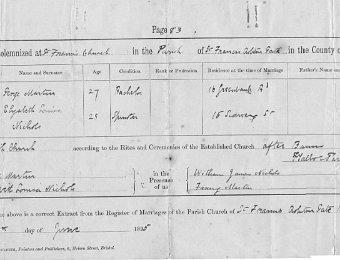 Page 83.
olemnized at St Francis Church in the Parish of St Francis Ashton Gate in the County o
Name and Surname Age Condition Rank or Profession Residence at the time of Marriage Father's Name an
George Martin 27 Bachelor 16 Greenbank Rd
Elizabeth Louisa Nichols 25 Spinster 15 St
Church according to the Rites and Ceremonies of the Established Church after Banns
Martin in the Presence of us William James Nichols
Louisa Nichols Fanny Martin
he above is a correct Extract from the Register of Marriages of the Parish Church of St Francis Ashton Gate
day of June 18
Printers and Publishers, 6, Nelson Street, Bristol.